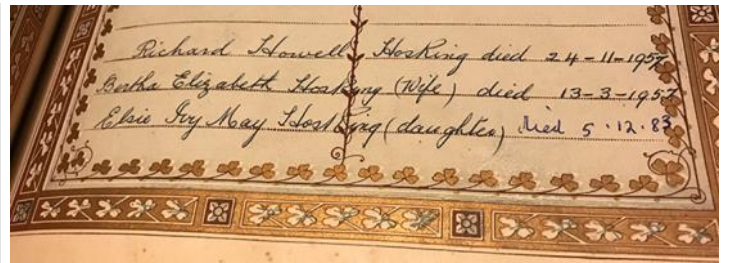 Richard Howell Hosking died 24-11-1957
Bertha Elizabeth Hosking (Wife) died 13-3-1957
Elsie Ivy May Hosking (daughter) died 5.12.83